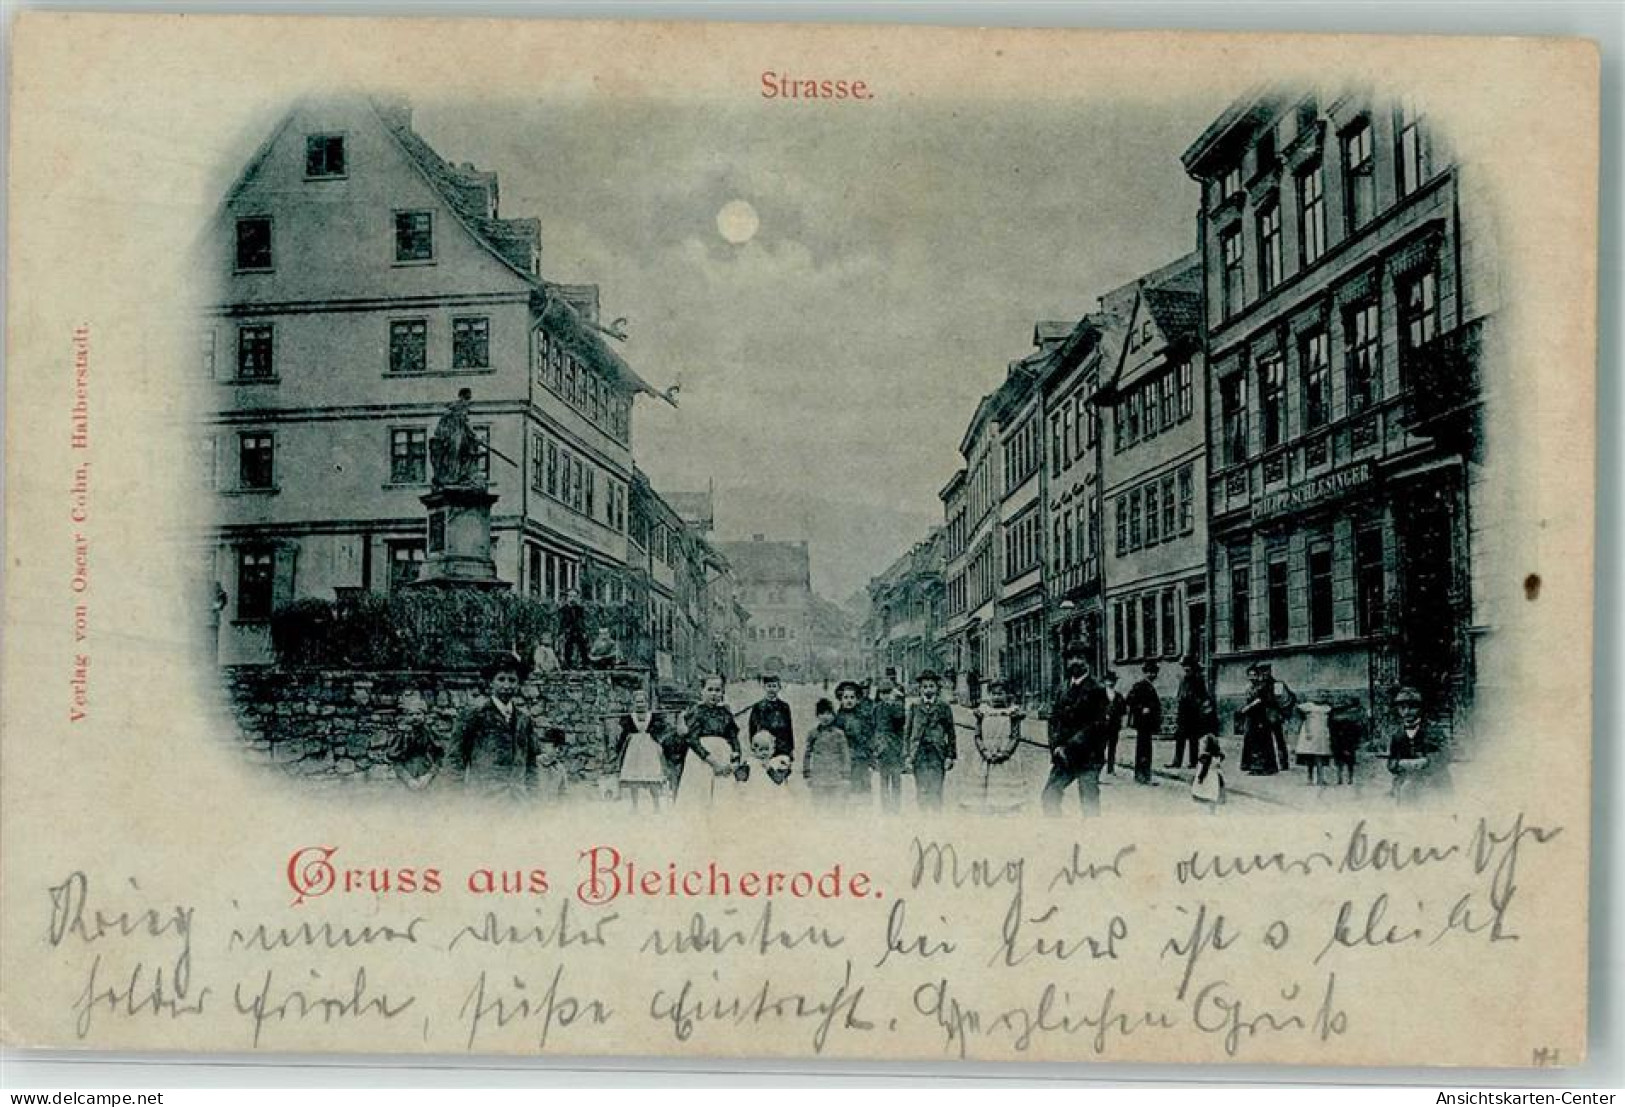 Strasse.
Verlag von Oscar Cohn, Halberstadt.
PHILIPP SCHLESINGER
Gruss aus Bleicherode.
Mag der amerikanische
Krieg immer weiter wüten, bei uns ist & bleibt
holder Friede, süße Eintracht. Herzlichen Gruß
Ansichtskarten-Center